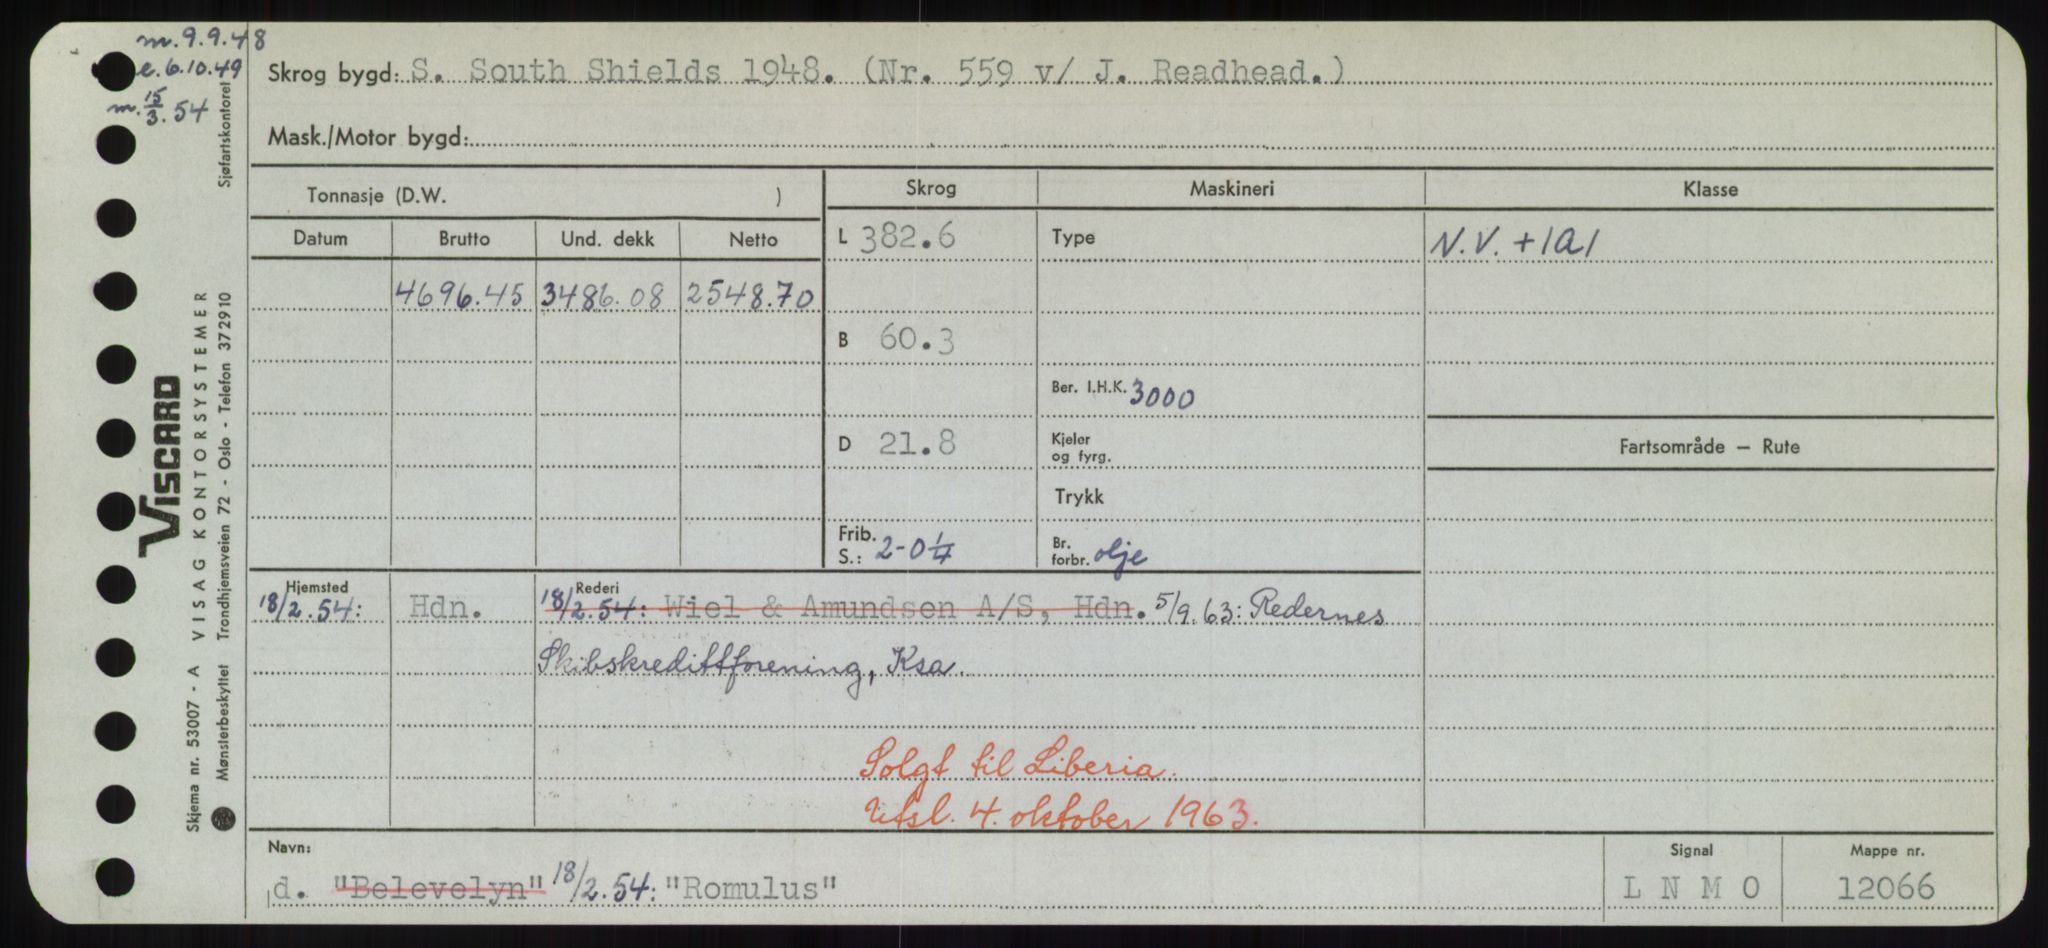 m. 9.9.48
e. 6.10.49
m. 15/3.54
Skrog bygd: S. South Shields 1948. (Nr. 559 v/ J. Readhead.)
Mask./Motor bygd:
Tonnasje (D.W. )
Skrog Maskineri Klasse
Datum Brutto Und. dekk Netto
L 382.6 Type N.V. +1A1
4696.45 3486.08 2548.70
B 60.3
Ber. I.H.K. 3000
D 21.8 Kjeler og fyrg.
Fartsområde — Rute
Trykk
Frib. S.: 2-0¼ Br. forbr. olje
Hjemsted Rederi
18/2.54: Hdn. 18/2.54: Wiel & Amundsen A/S, Hdn. 5/9.63: Redernes
Skibskredittforening, Ksa.
Solgt til Liberia.
Utsl. 4. oktober 1963.
Navn: Signal Mappe nr.
d. "Belevelyn" 18/2.54: "Romulus" L N M O 12066
Sjøfartskontoret
VISCARD
VISAG KONTORSYSTEMER
Skjema nr. 53007 - A
Mønsterbeskyttet Trondhjemsveien 72 - Oslo - Telefon 372910